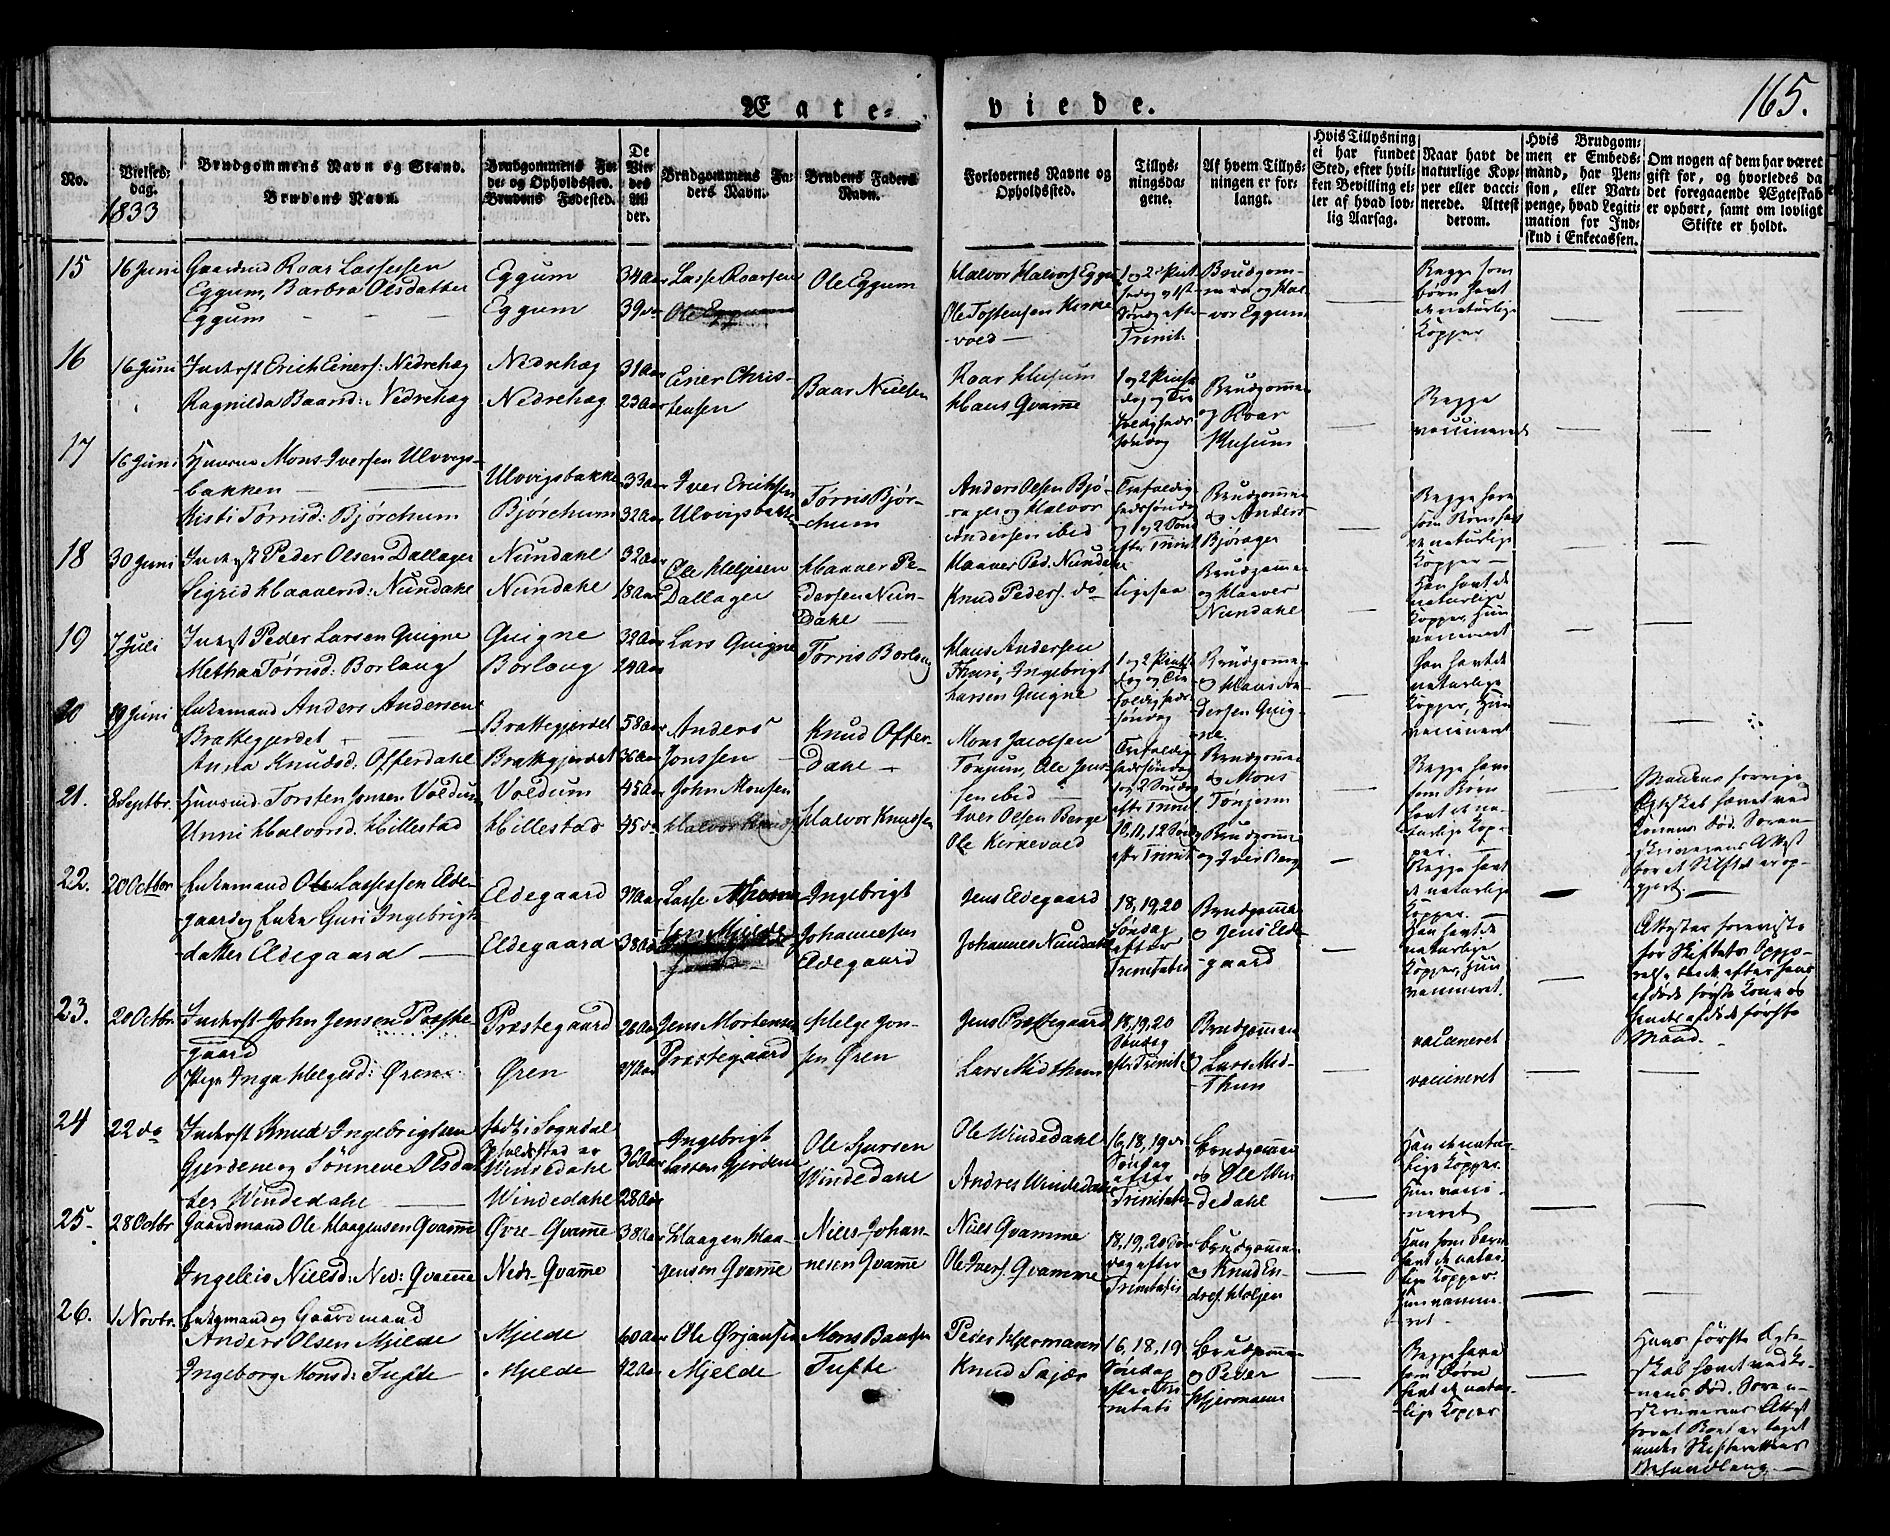 165.
Ægte-
viede.
No.
Vielses-
dag.
1833
Brudgommens Navn og Stand.
Brudens Navn.
Brudgommens Fø-
de- og Opholdssted.
Brudens Fødested.
De
Vie-
des
Al-
der.
Brudgommens Fa-
ders Navn.
Brudens Faders
Navn.
Forlovernes Navne og
Opholdssted.
Tillys-
ningsda-
gene.
Af hvem Tillys-
ningen er for-
langt.
Hvis Tillysning
ei har fundet
Sted, efter hvil-
ken Bevilling el-
ler af hvad lov-
lig Aarsag.
Naar havt de
naturlige Kop-
per eller vacci-
nerede. Attest
derom.
Hvis Brudgom-
men er Embeds-
mand, har Pen-
sion, eller Vart-
penge, hvad Legiti-
mation for Ind-
skud i Enkecassen.
Om nogen af dem har været
gift før, og hvorledes da
det foregaaende Ægteskab
er ophørt, samt om lovligt
Skifte er holdt.
15
16 Juni
Gaardmd Roar Lassessen
Eggum, Barbra Olsdatter
Eggum
Eggum
Eggum
34 Aar
39 do
Lasse Roarsen
Ole Eggum
Ole Eggum
Halvor Halvors Eggum
Ole Tostensen Kirke
vold
1 og 2 Pint-
sedag og 1st
Søndag efter
Trinit.
Brudgom-
men og Hal-
vor Eggum
Begge som
børn havt
de naturlige
Kopper
16
16 Juni
Inderst Erich Einers: Nedrehæg
Ragnilda Baards: Nedrehæg
Nedrehæg
Nedrehæg
31 Aar
23 Aar
Einer Chris-
tensen
Baar Nielsen
Roar Husum
Hans Qvamme
1 og 2 Pintse
dag og Tre
foldigheds
søndag
Brudgommen
og Roar
Husum
Begge
vaccineret
17
16 Juni
Huusmd Mons Iversen Ulvigs-
bakken
Kisti Torrisd: Bjørchum
Ulvigsbakke
Bjørchum
33 Aar
32 Aar
Iver Erichsen
Ulvigsbakke
Tørris Bjør-
chum
Anders Olsen Bjø-
rager og Halvor
Andersen ibid
Trefoldig
hedssøndag
og 1 og 2 Sønd
efter Trinit
Brudgommen
og Anders
Bjørager
Begge have
som Børn havt
de naturlige
Kopper
18
30 Juni
Inderst Peder Olsen Dallager
Sigrid Haaversd: Nundahl
Nundahl
Nundahl
32 Aar
18 Aar
Ole Helgesen
Dallager
Haaver Pe-
dersen Nun-
dahl
Haaver Ped. Nundahl
Knud Peders. do
Ligesaa
Brudgommen
og Haaver
Nundahl
Han havt de
naturlige
Kopper, Hun
vaccineret
19
7 Juli
Inderst Peder Larsen Qvigne
Metha Tørrisd: Borlaug
Qvigne
Borlaug
32 Aar
24 Aar
Lars Qvigne
Torris Borlaug
Hans Andersen
Thuri, Ingebrigt
Larsen Qvigne
1 og 2 Pintse
dag og Tre
foldigheds
søndag
Brudgommen
og Hans An-
dersen Qvig-
ne.
Han havt de
naturlige
Kopper, Hun
vaccineret
20
19 Juni
Enkemand Anders Andersen
Brattegjerdet
Anna Knudsd: Offerdahl
Brattegjerdet
Brattegjerdet
58 Aar
36 Aar
Anders
Jonssen
Knud Offer-
dahl
Mons Jacobsen
Tønjum, Ole Jens-
sen ibid
Trefoldig
hedssøndag
1 og 2 Søndag
efter Trinit
Brudgommen
og Mons
Tønjum
Begge have
som Børn
havt de na-
turlige Kop-
per.
21.
8 Septbr.
Huusmd: Torsten Jonsen Voldum
Unni Halvorsd. Hillestad
Voldum
Hillestad
45 Aar
45 do
John Monsen
Halvor Knuds
Halvor Knudsen
Iver Olsen Berge
Ole Kirkevold
10, 11, 12 Sønd
efter Trinit
Brudgommen
og Iver Berg
Begge havt
de naturlige
Kopper.
Mandens forrige
Ægteskab hævet ved
Konens Død. Soren-
skriverens Attest
for at Skifte er op-
gjort.
22.
20 Octbr
Enkemand Ole Lassessen Elde-
gaard og Enke Guri Ingebrigts
datter Eldegaard
Eldegaard
Eldegaard
37 Aar
38 Aar
Lasse
sen Mjelde
Ingebrigt
Johannesen
Eldegaard
Jens Eldegaard
Johannes Nundahl
18, 19, 20
Søndag
efter
Trinitatis
Brudgommen
og Jens Elde-
gaard
Han havt de
naturlige
Kopper, Hun
vaccineret.
Attester foreviste
for Skiftets Oppgjø-
relse baade efter hans
afdøde første Kone og
hendes afdøde første
Mand.
23.
20 Octbr.
Inderst John Jensen Præste-
gaard
Pige Inga Helgesd: Øren
Præstegaard
Øren
26 Aar
37 Aar
Jens Mortensen
Præstegaard
Helge Jon-
sen Øren
Jens Præstegaard
Lars Midthun
18, 19, 20
Søndag
efter Trinit
Brudgommen
og Lars Mid-
thun
vaccineret
vaccineret
24
22 do
Inderst Knud Ingebrigtsen
Gjerdene og Sønneve Olsdat-
ter Windedahl
født i Sogndal
Opholdssted er
Windedahl
Windedahl
36 Aar
28 Aar
Ingebrigt
Larsen Gjerdene
Ole Sjursen
Windedahl
Ole Windedahl
Andres Windedahl
16, 18, 19de
Søndag
efter
Trinitatis
Brudgommen
og Ole Win-
dedahl
Han de natur-
lige Kopper
Hun vacci-
neret
25.
28 Octbr
Gaardmand Ole Haagensen Qvamme
Ingeleiv Nielsd: Ned: Qvamme
Øvre-Qvamme
Nedr-Qvamme
38 Aar
Haagen Haa-
gensen Qvamme
Niels Johan-
nesen Qvamme
Niels Qvamme
Ole Ivers. Qvamme
18, 19, 20 Søn-
dag efter
Trinitatis
Brudgommen
og Knud En-
dres. Hæljen
Han som barn
havt de natur-
lige Kopper.
Hun vaccine-
ret.
26.
1 Novbr.
Enkemand og Gaardmand
Anders Olsen Mjelde
Ingeborg Monsd: Tufte
Mjelde
Mjelde
60 Aar
42 Aar
Ole Ørjansen
Mjelde
Mons Baarsen
Tufte
Peder Hjermann
Knud Sajær
16, 18, 19
Søndag
efter Tri-
nitatis
Brudgommen
og Peder
Hjermann
Begge have
som Børn
havt de natur-
lige Kopper
Hans første Ægte-
skab hævet ved Ko-
nens Død. Soren-
skriverens Attest
for at Boet er taget
under Skifterettens
Behandling.